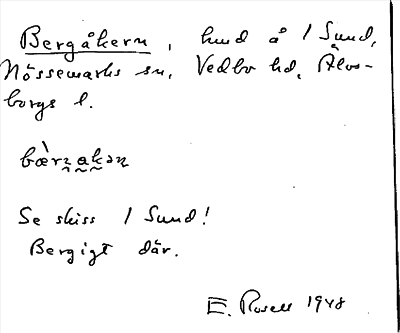 Bergåkern, hmd å 1 Sund,
Nössemarks sn, Vedbo hd, Älvs-
borgs l.
bærzakən
Se skiss 1 Sund!
Bergigt där.
E. Rosell 1948